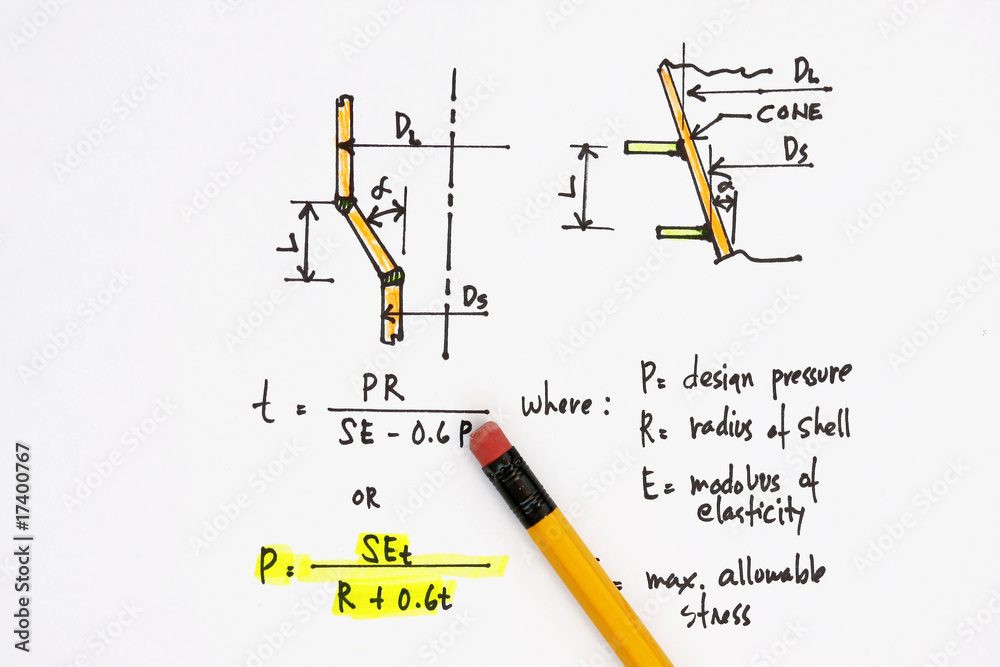 DL
α
L
DS
DL
CONE
DS
α
L
t = PR / SE - 0.6 P
where :
P = design pressure
R = radius of shell
E = modolus of
elasticity
= max. allowable
stress
OR
P = SEt / R + 0.6t
Adobe Stock | #17400767